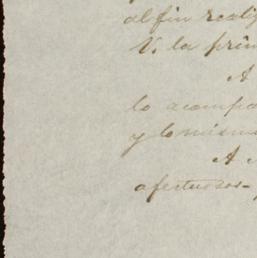 al fin reali
V. la prim
A
lo acompa
y lo mismo
A
afectuosos